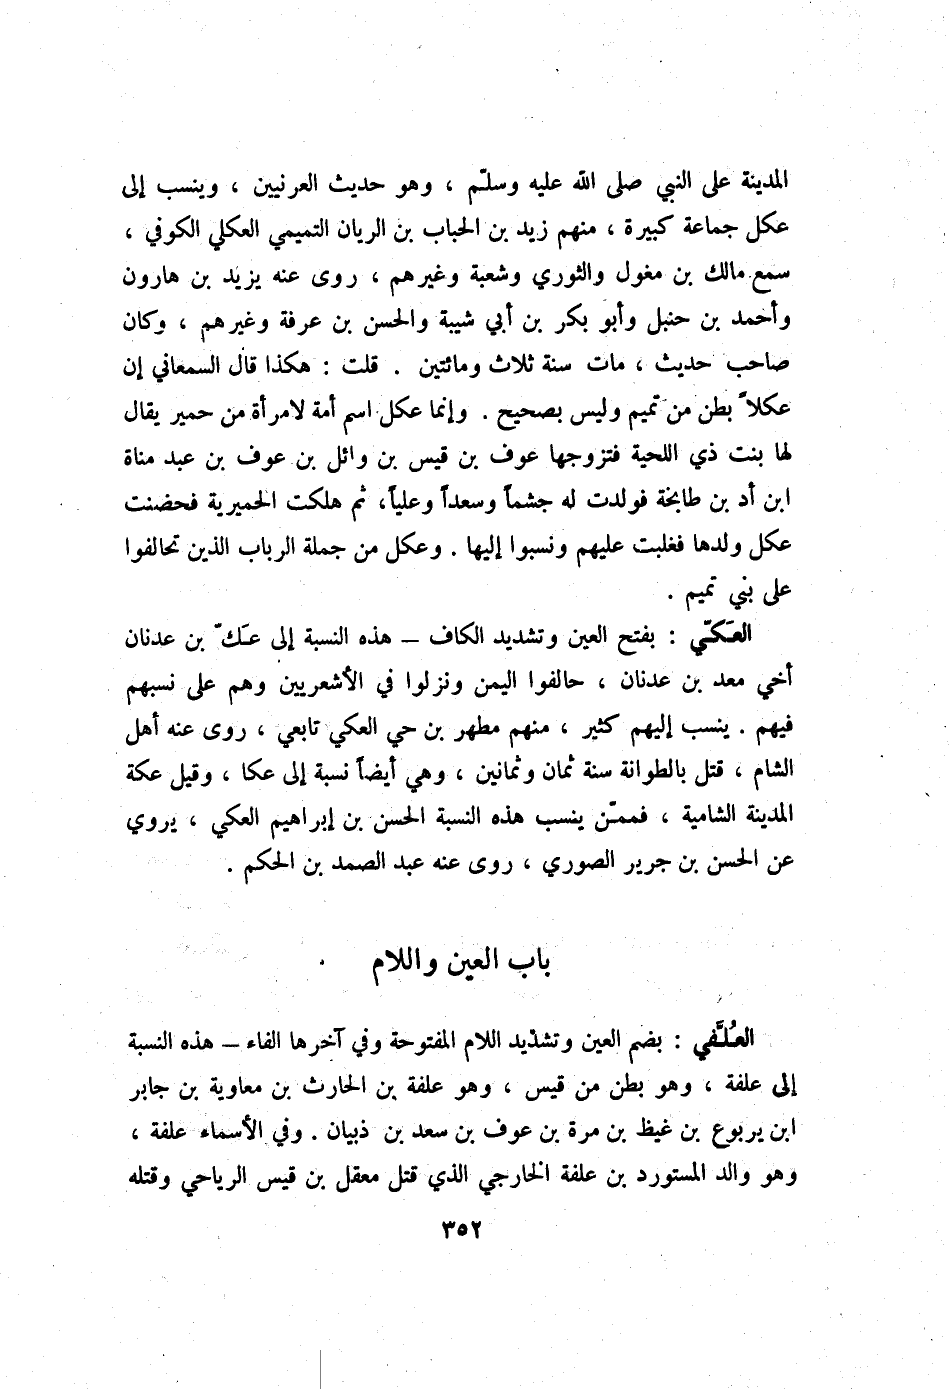 المدينة على النبي صلى الله عليه وسلّم ، وهو حديث العرنيين ، وينسب إلى
عكل جماعة كبيرة ، منهم زيد بن الحباب بن الريان التميمي العكلي الكوفي ،
سمع مالك بن مغول والثوري وشعبة وغيرهم ، روى عنه يزيد بن هارون
وأحمد بن حنبل وأبو بكر بن أبي شيبة والحسن بن عرفة وغيرهم ، وكان
صاحب حديث ، مات سنة ثلاث ومائتين . قلت : هكذا قال السمعاني إن
عكلاً بطن من تميم وليس بصحيح . وإنما عكل اسم أمة لامرأة من حمير يقال
لها بنت ذي اللحية فتزوجها عوف بن قيس بن وائل بن عوف بن عبد مناة
ابن أد بن طابخة فولدت له جشماً وسعداً وعلياً، ثم هلكت الحميرية فحضنت
عكل ولدها فغلبت عليهم ونسبوا إليها . وعكل من جملة الرباب الذين تحالفوا
على بني تميم .
العَكّي : بفتح العين وتشديد الكاف – هذه النسبة إلى عَكّ بن عدنان
أخي معد بن عدنان ، حالفوا اليمن ونزلوا في الأشعريين وهم على نسبهم
فيهم . ينسب إليهم كثير ، منهم مطهر بن حي العكي تابعي ، روى عنه أهل
الشام ، قتل بالطوانة سنة ثمان وثمانين ، وهي أيضاً نسبة إلى عكا ، وقيل عكة
المدينة الشامية ، فممّن ينسب هذه النسبة الحسن بن إبراهيم العكي ، يروي
عن الحسن بن جرير الصوري ، روى عنه عبد الصمد بن الحكم .
باب العين واللام
العُلَّفي : بضم العين وتشديد اللام المفتوحة وفي آخرها الفاء – هذه النسبة
إلى علفة ، وهو بطن من قيس ، وهو علفة بن الحارث بن معاوية بن جابر
ابن يربوع بن غيظ بن مرة بن عوف بن سعد بن ذبيان . وفي الأسماء علفة ،
وهو والد المستورد بن علفة الخارجي الذي قتل معقل بن قيس الرياحي وقتله
٣٥٢